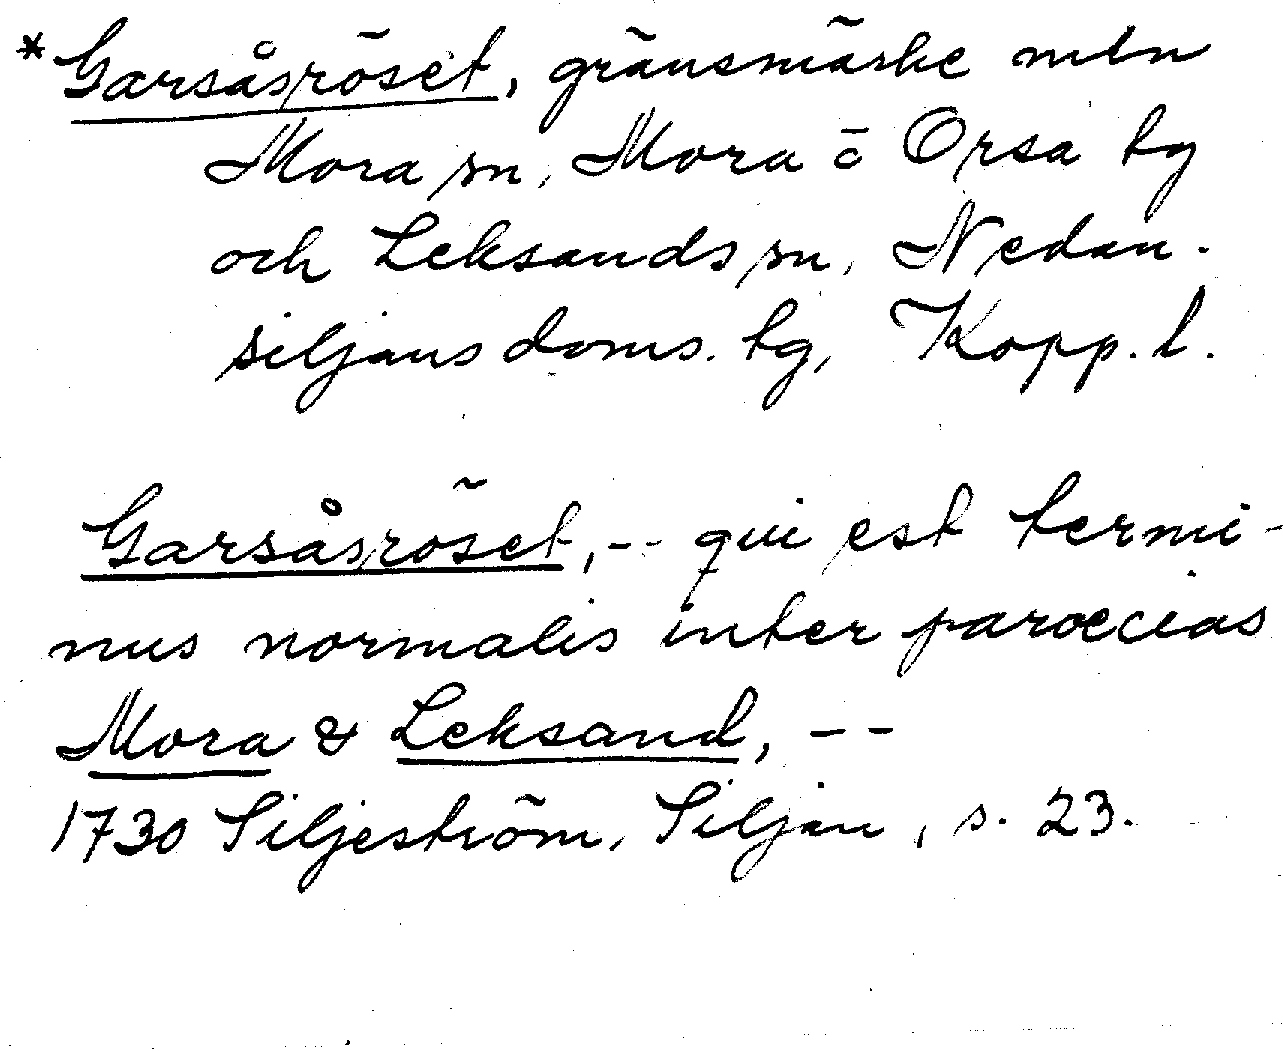 *Garsåsröset, gränsmärke mln
Mora sn, Mora o Orsa tg
och Leksands sn, Nedan-
siljans doms. tg, Kopp. l.
Garsåsröset, -- qui est termi-
nus normalis inter paroecias
Mora & Leksand, --
1730 Siljeström, Siljan, s. 23.